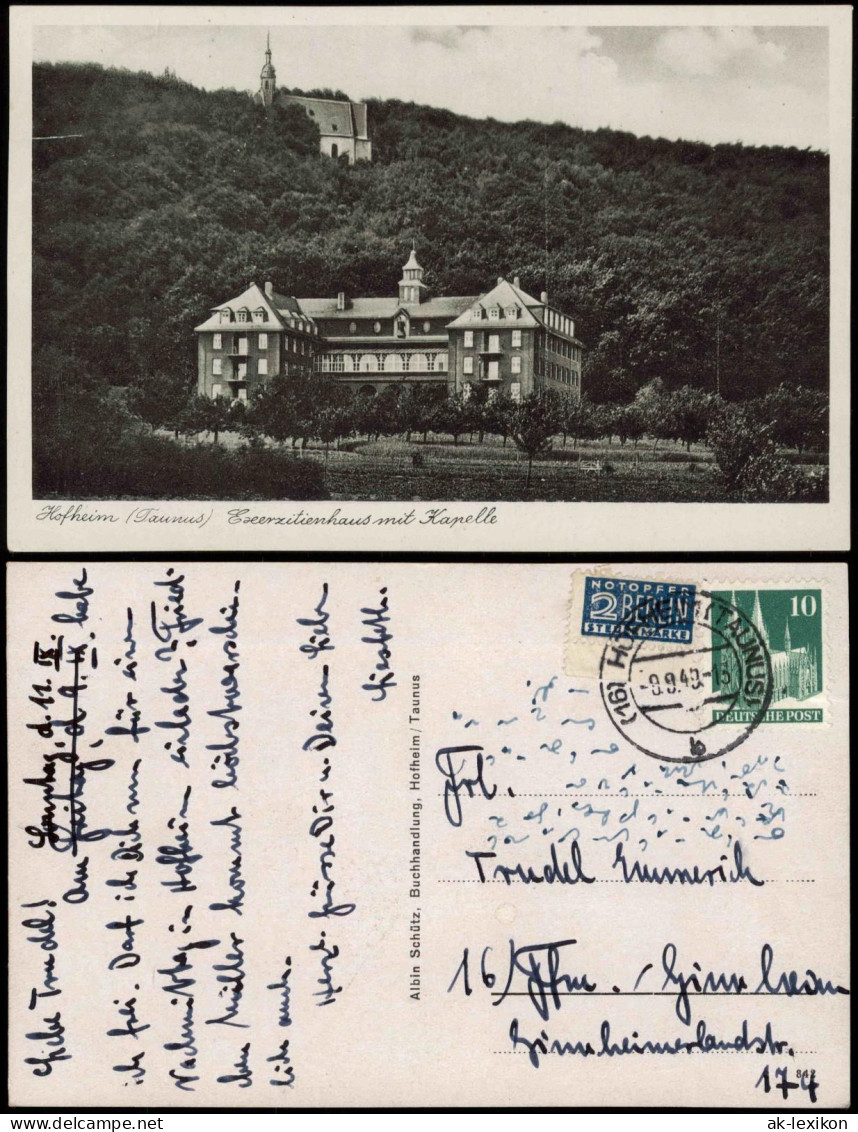 Hofheim (Taunus) Exerzitienhaus mit Kapelle
Liebe Trudel! Sonntag, d. 11. IX.
am Freitag, d. 9. IX. habe
ich frei. Darf ich Dich nun für einen
Nachmittag in Hofheim einladen? Fried-
chen Müller kommt höchstwahrschein-
lich auch.
Herzl. Grüsse Dir u. Deinen Lieben
Albin Schütz, Buchhandlung, Hofheim/Taunus
NOTOPFER
2 BERLIN
STEUERMARKE
10
DEUTSCHE POST
(16) HOFHEIM (TAUNUS)
-9.9.49.-15
b
Frl.
Trudel Emmerich
16/ Ffm. / Ginnheim
Ginnheimerlandstr.
174
ak-lexikon